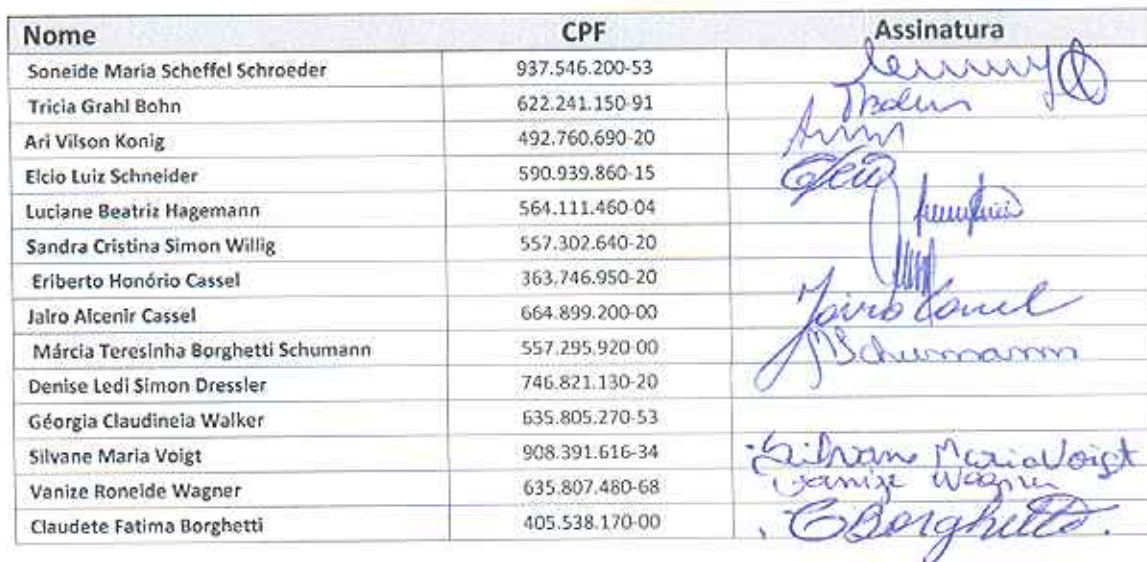 Nome CPF Assinatura
Soneide Maria Scheffel Schroeder 937.546.200-53
Tricia Grahl Bohn 622.241.150-91
Ari Vilson Konig 492.760.690-20
Elcio Luiz Schneider 590.939.860-15
Luciane Beatriz Hagemann 564.111.460-04
Sandra Cristina Simon Willig 557.302.640-20
Eriberto Honório Cassel 363.746.950-20
Jairo Alcenir Cassel 664.899.200-00 Jairo Cassel
Márcia Teresinha Borghetti Schumann 557.295.920-00 MBSchumann
Denise Ledi Simon Dressler 746.821.130-20
Géorgia Claudineia Walker 635.805.270-53
Silvane Maria Voigt 908.391.616-34 Silvane Maria Voigt
Vanize Roneide Wagner 635.807.480-68 Vanize Wagner
Claudete Fatima Borghetti 405.538.170-00 CBorghetti.